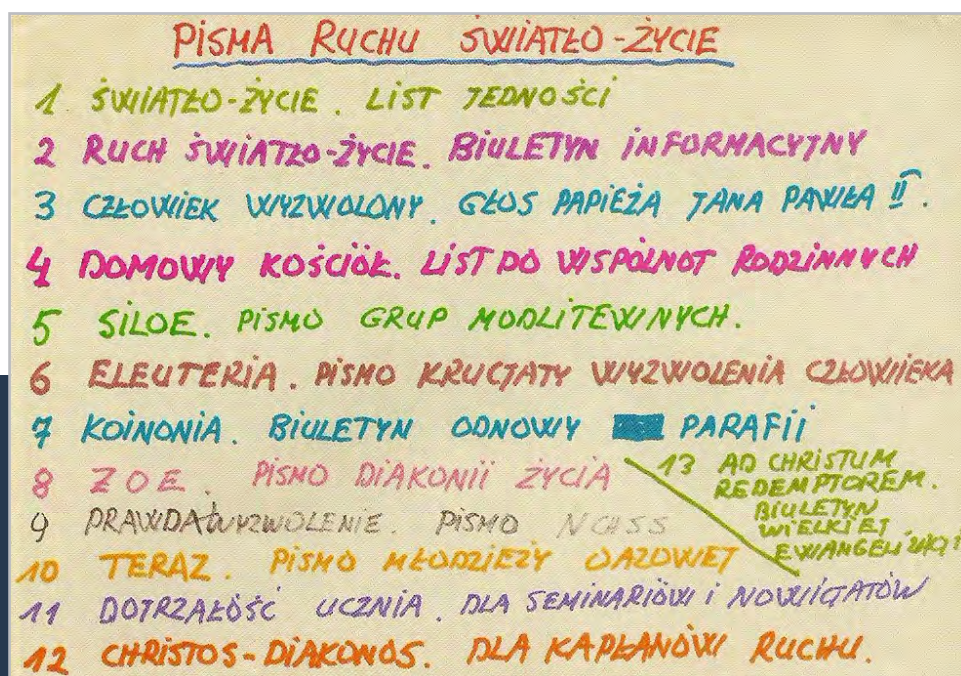 PISMA RUCHU ŚWIATŁO-ŻYCIE
1 ŚWIATŁO-ŻYCIE. LIST JEDNOŚCI
2 RUCH ŚWIATŁO-ŻYCIE. BIULETYN INFORMACYJNY
3 CZŁOWIEK WYZWOLONY. GŁOS PAPIEŻA JANA PAWŁA II.
4 DOMOWY KOŚCIÓŁ. LIST DO WSPÓLNOT RODZINNYCH
5 SILOE. PISMO GRUP MODLITEWNYCH.
6 ELEUTERIA. PISMO KRUCJATY WYZWOLENIA CZŁOWIEKA
7 KOINONIA. BIULETYN ODNOWY PARAFII
8 ZOE. PISMO DIAKONII ŻYCIA
9 PRAWDA WYZWOLENIE. PISMO NCHSS
10 TERAZ. PISMO MŁODZIEŻY OAZOWEJ
11 DOJRZAŁOŚĆ UCZNIA. DLA SEMINARIÓW i NOWICJATÓW
12 CHRISTOS-DIAKONOS. DLA KAPŁANÓW RUCHU.
13 AD CHRISTUM
REDEMPTOREM.
BIULETYN
WIELKIEJ
EWANGELIZACJI